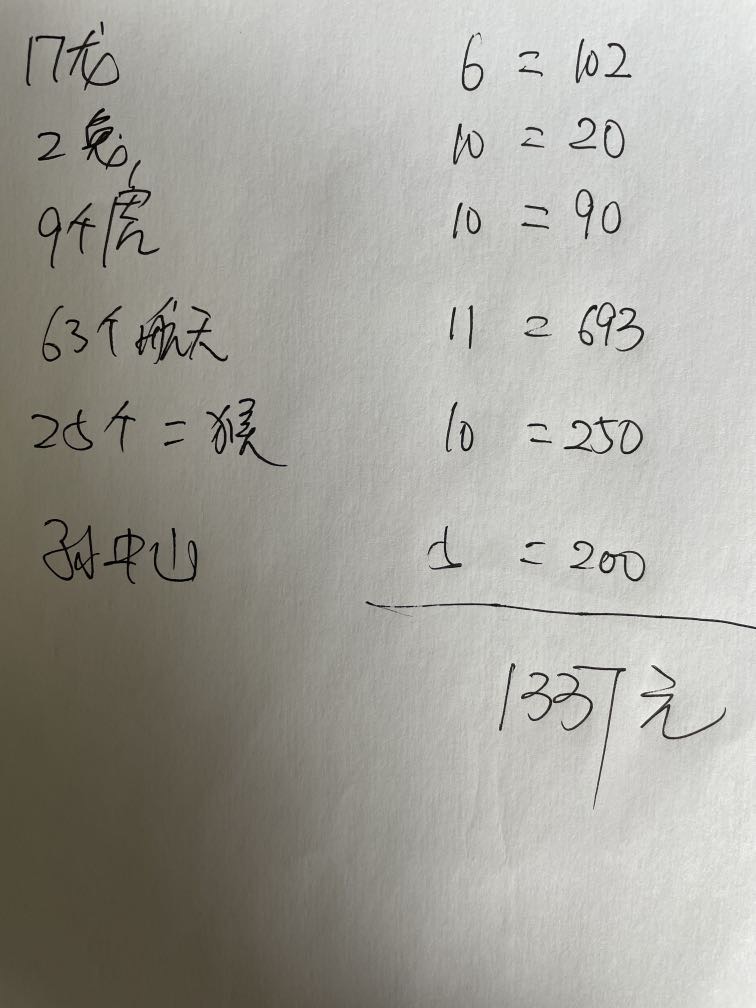 17龙 6 = 102
2兔 10 = 20
9个虎 10 = 90
63个航天 11 = 693
25个 = 猴 10 = 250
孙中山 = 200
1337元